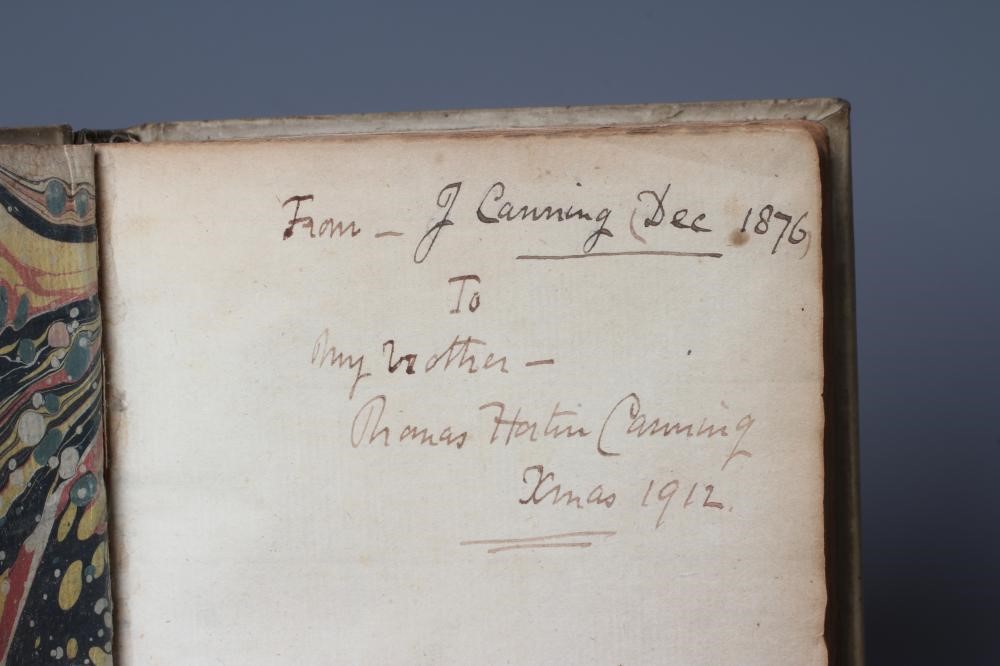 From – J Canning (Dec 1876)
To
My brother –
Thomas Hortin Canning
Xmas 1912.